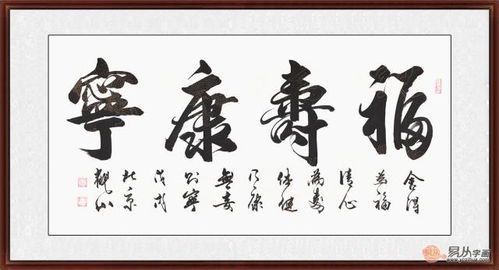 福壽康寧
舍得
為福
清心
為壽
体健
乃康
無妄
寧
戊戌
京
觀山
易从字画